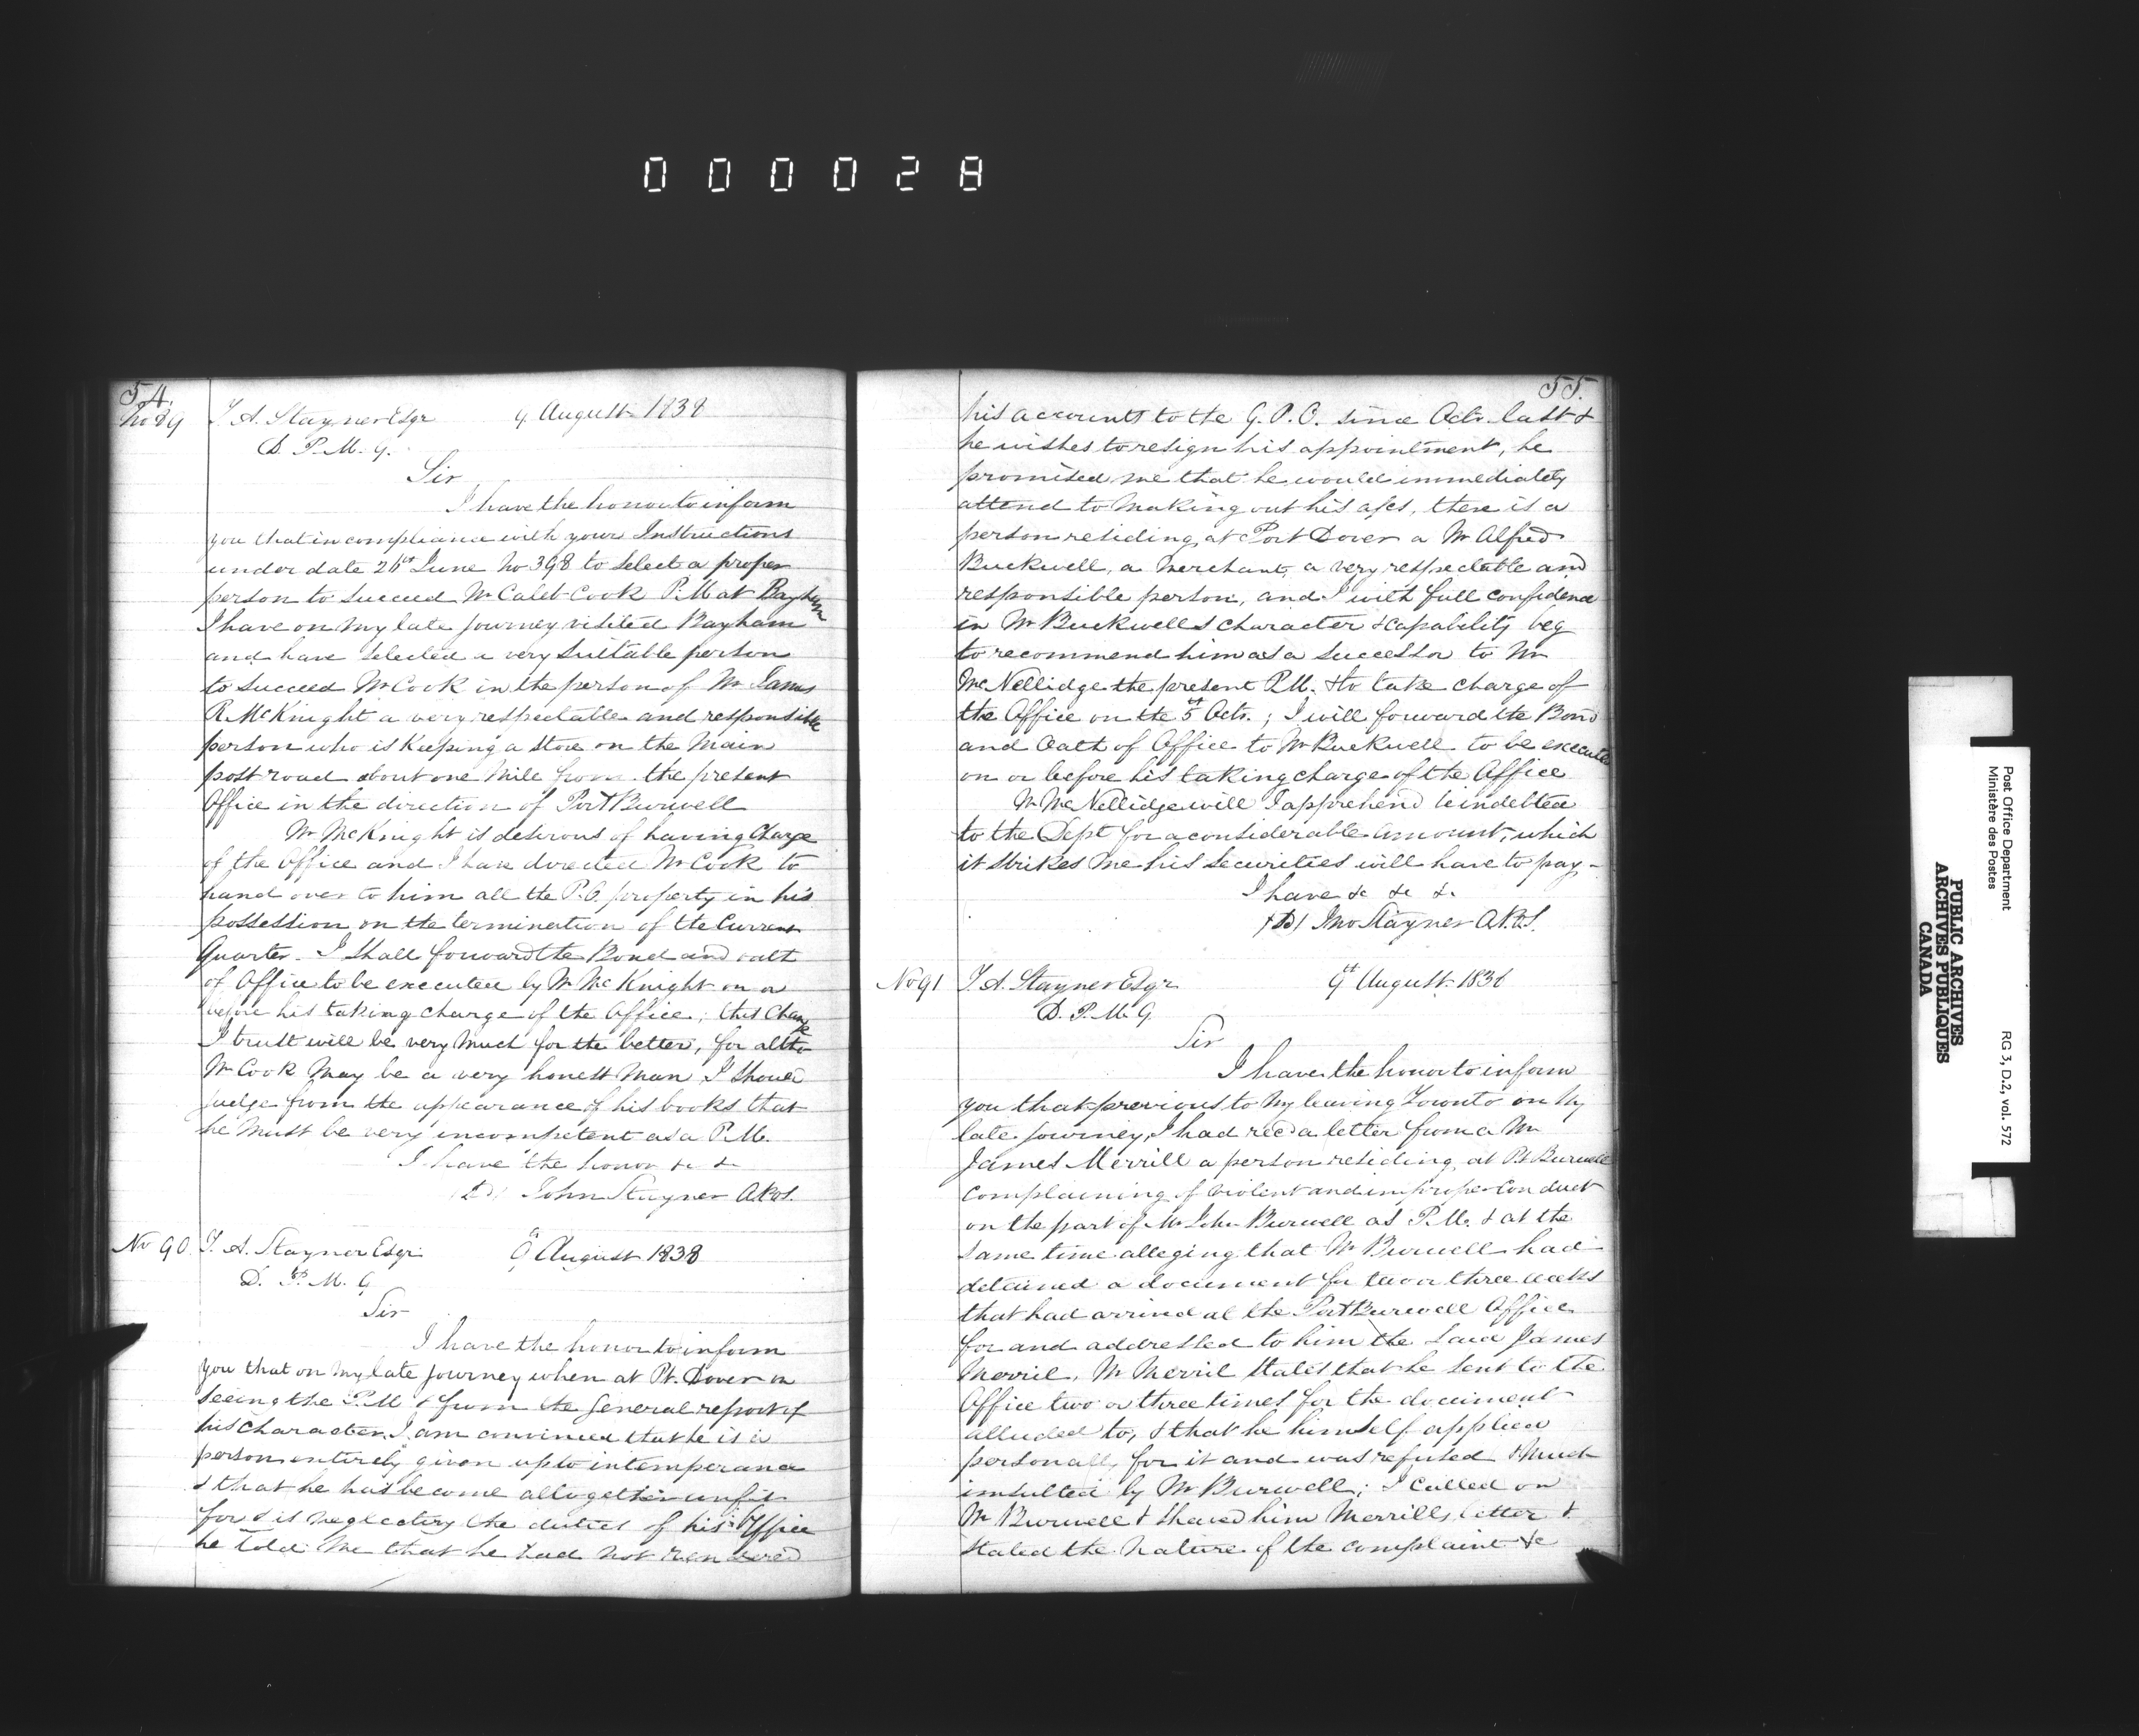 000028
54.
No 89 T. A. Stayner Esqr 9 August 1838
D. P. M. G.
Sir
I have the honour to inform
you that in compliance with your Instructions
under date 26th June No 398 to select a proper
person to succeed Mr Caleb Cook P.M at Bayham
I have on my late journey visited Bayham
and have selected a very suitable person
to succeed Mr Cook in the person of Mr James
R. McKnight a very respectable and responsible
person who is keeping a store on the Main
post road about one mile from the present
Office in the direction of Port Burwell
Mr McKnight is desirous of having Charge
of the Office and I have directed Mr Cook to
hand over to him all the P.O. property in his
possession on the termination of the Current
Quarter. I shall forward the Bond and oath
of Office to be executed by Mr McKnight on or
before his taking charge of the Office; this Change
I trust will be very much for the better, for altho
Mr Cook may be a very honest Man I should
judge from the appearance of his books that
he must be very incompetent as a P.M.
I have the honor &c &c
John Stayner
No 90 T. A. Stayner Esqr 9th August 1838
D. P. M. G
Sir
I have the honor to inform
you that on my late journey when at Pt. Dover on
seeing the P.M & from the general report of
his character, I am convinced that he is a
person entirely given up to intemperance
& that he has become altogether unfit
for & is neglecting the duties of his Office
he told me that he had not rendered
55.
his accounts to the G. P. O. since Octr. last &
he wishes to resign his appointment, he
promised me that he would immediately
attend to making out his a/cs, there is a
person residing at Port Dover a Mr Alfred
Buckwell, a merchant, a very respectable and
responsible person, and I with full confidence
in Mr Buckwells character & capability beg
to recommend him as a successor to Mr
McNellidge the present P.M. & to take charge of
the Office on the 5th Octr.; I will forward the Bond
and Oath of Office to Mr Buckwell to be executed
on or before his taking charge of the Office
Mr McNellidge will I apprehend be indebted
to the Dept for a considerable amount, which
it strikes me his securities will have to pay -
I have &c &c &c
Jno Stayner
No 91 T. A. Stayner Esqr 9th August 1838
D. P. M. G.
Sir
I have the honor to inform
you that previous to my leaving Toronto on my
late journey, I had recd a letter from a Mr
James Merrill a person residing at Pt Burwell
complaining of violent and improper conduct
on the part of Mr John Burwell as P.M. & at the
same time alleging that Mr Burwell had
detained a document for two or three weeks
that had arrived at the Port Burwell Office
for and addressed to him the said James
Merril, Mr Merril states that he sent to the
Office two or three times for the document
alluded to, & that he himself applied
personally for it and was refused & much
insulted by Mr Burwell; I called on
Mr Burwell & shewed him Merrills letter &
stated the nature of the complaint &c
Post Office Department
Ministère des Postes
RG 3, D.2, vol. 572
PUBLIC ARCHIVES
ARCHIVES PUBLIQUES
CANADA